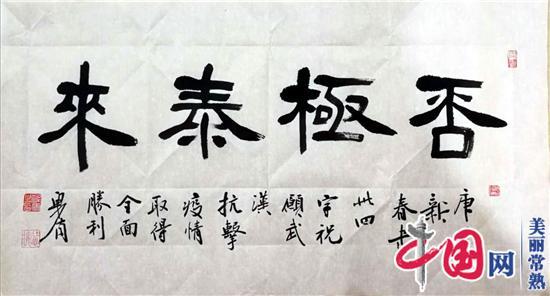 否極泰來
庚
新
春书
卅四
字祝
願武
漢
抗擊
疫情
取得
全面
勝利
中国网
美丽常熟